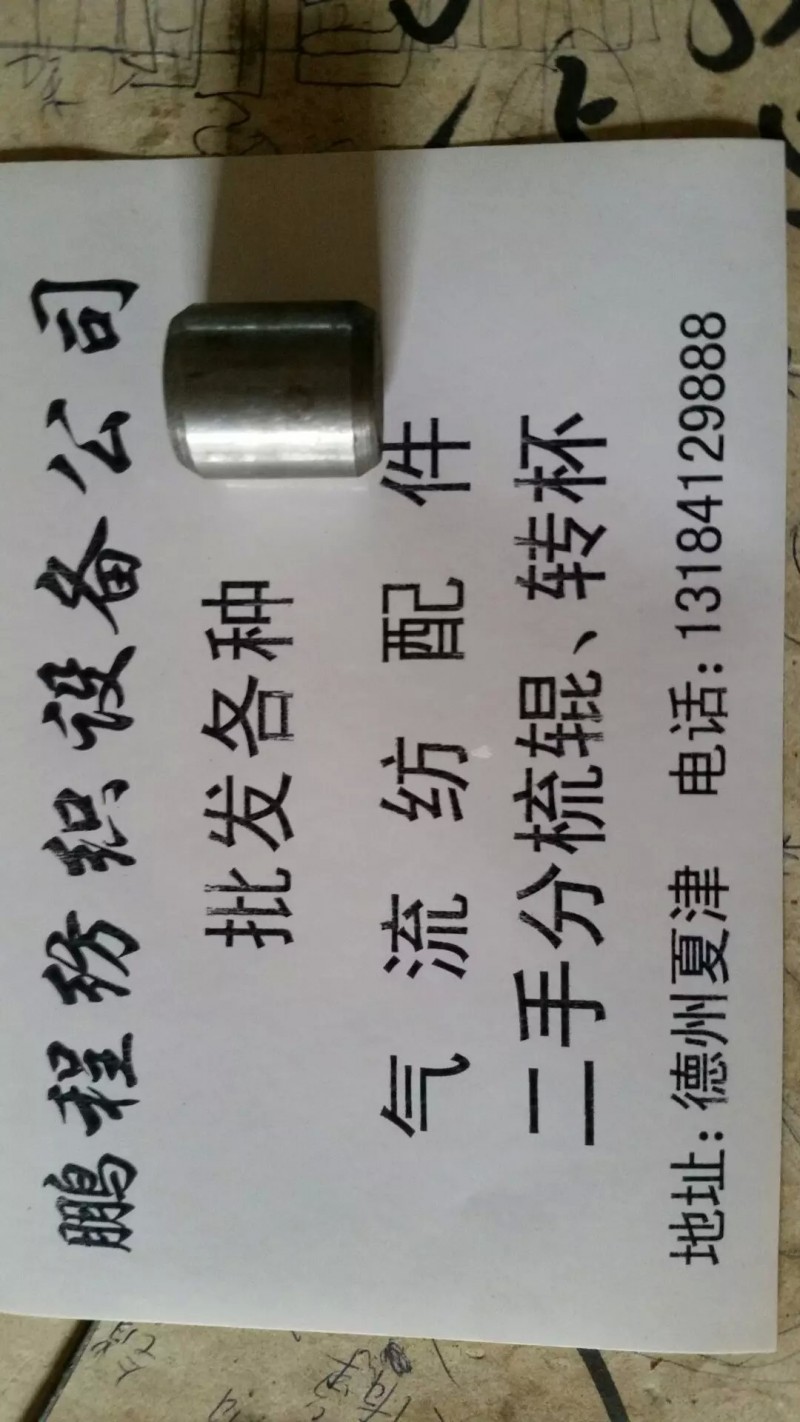 鹏程纺织设备公司
批发各种
气流纺配件
二手分梳辊、转杯
地址：德州夏津 电话：13184129888